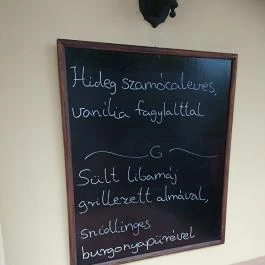 Hideg szamócaleves,
vanília fagylalttal
G
Sült libamáj
grillezett almával,
snidlinges
burgonyapürével